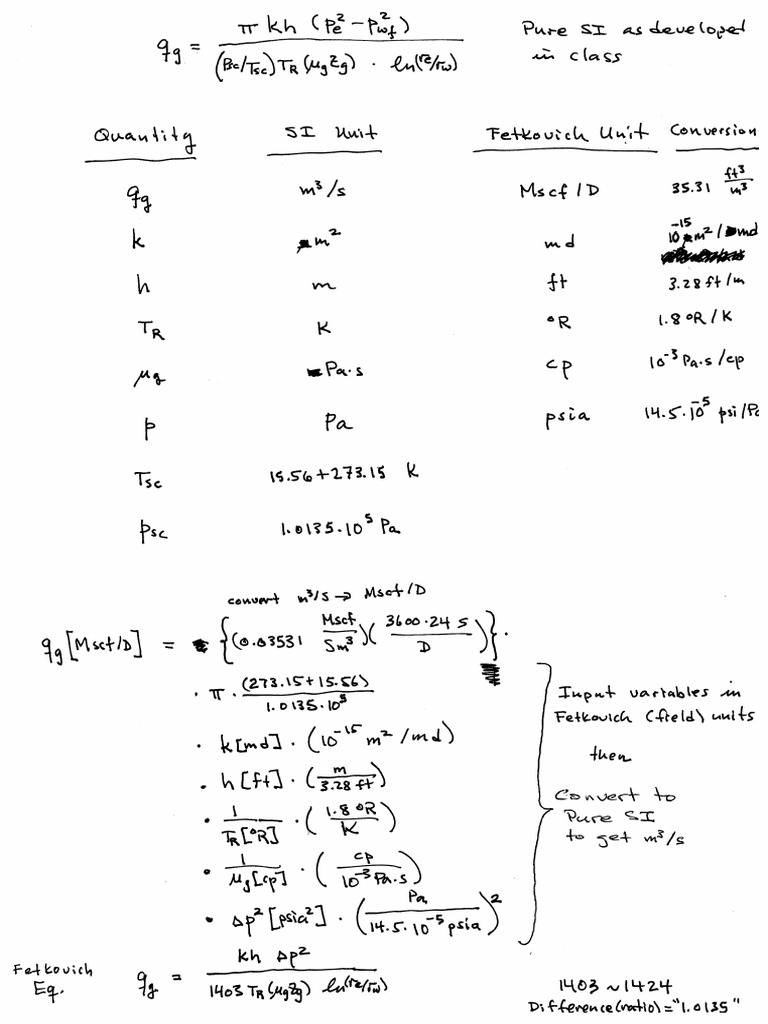 q_g = π kh (p_e² − p_wf²) / (p_sc/T_sc) T_R (μ_g Z_g) · ln(r_e/r_w)
Pure SI as developed
in class
Quantity SI Unit Fetkovich Unit Conversion
q_g m³/s Mscf/D 35.31 ft³/m³
k m² md 10⁻¹⁵ m²/md
h m ft 3.28 ft/m
T_R K °R 1.8 °R/K
μ_g Pa·s cp 10⁻³ Pa·s/cp
p Pa psia 14.5·10⁻⁵ psi/Pa
T_sc 15.56+273.15 K
p_sc 1.0135·10⁵ Pa
convert m³/s → Mscf/D
q_g [Mscf/D] = {(0.03531 Mscf/Sm³)(3600·24 s/D)}·
· π · (273.15+15.56)/1.0135·10⁵
· k[md] · (10⁻¹⁵ m²/md)
· h[ft] · (m/3.28 ft)
· 1/T_R[°R] · (1.8 °R/K)
· 1/μ_g[cp] · (cp/10⁻³ Pa·s)
· Δp² [psia²] · (Pa/14.5·10⁻⁵ psia)²
Input variables in
Fetkovich (field) units
then
Convert to
Pure SI
to get m³/s
Fetkovich
Eq.
q_g = kh Δp² / 1403 T_R (μ_g Z_g) ln(r_e/r_w)
1403 ~ 1424
Difference (ratio) = "1.0135"